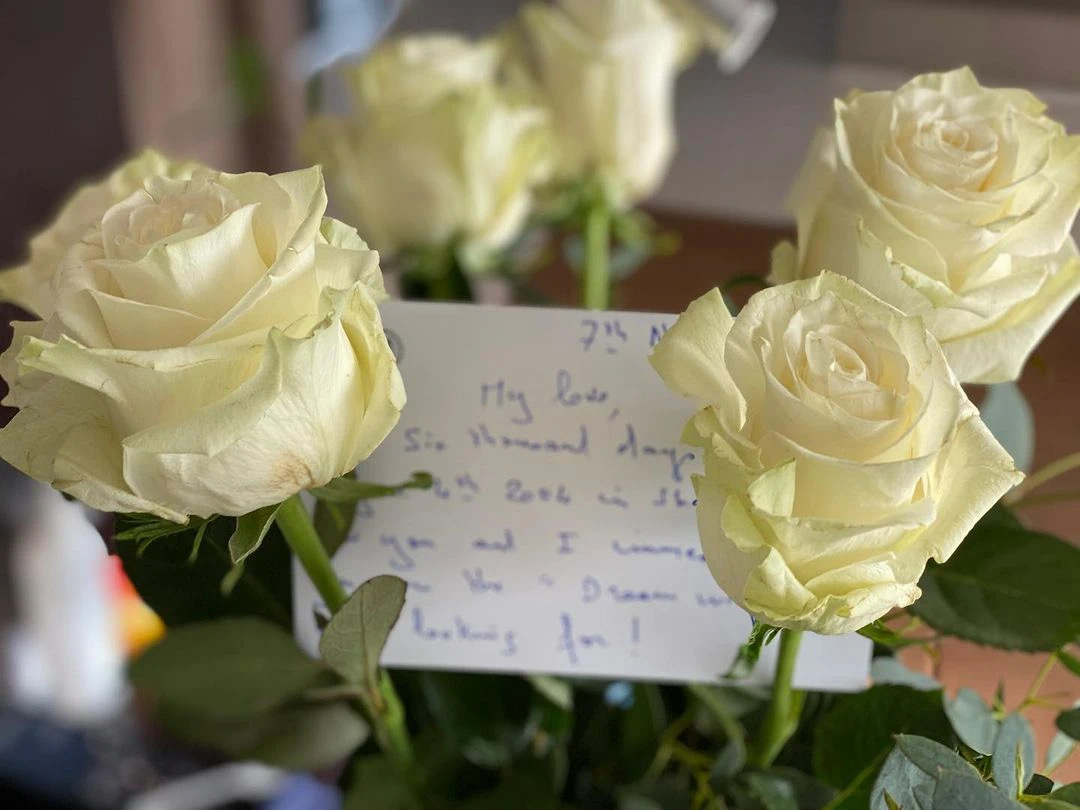 7th N
My love,
Six thousand days
4th 2004 in
you and I
the " Dream
looking for !